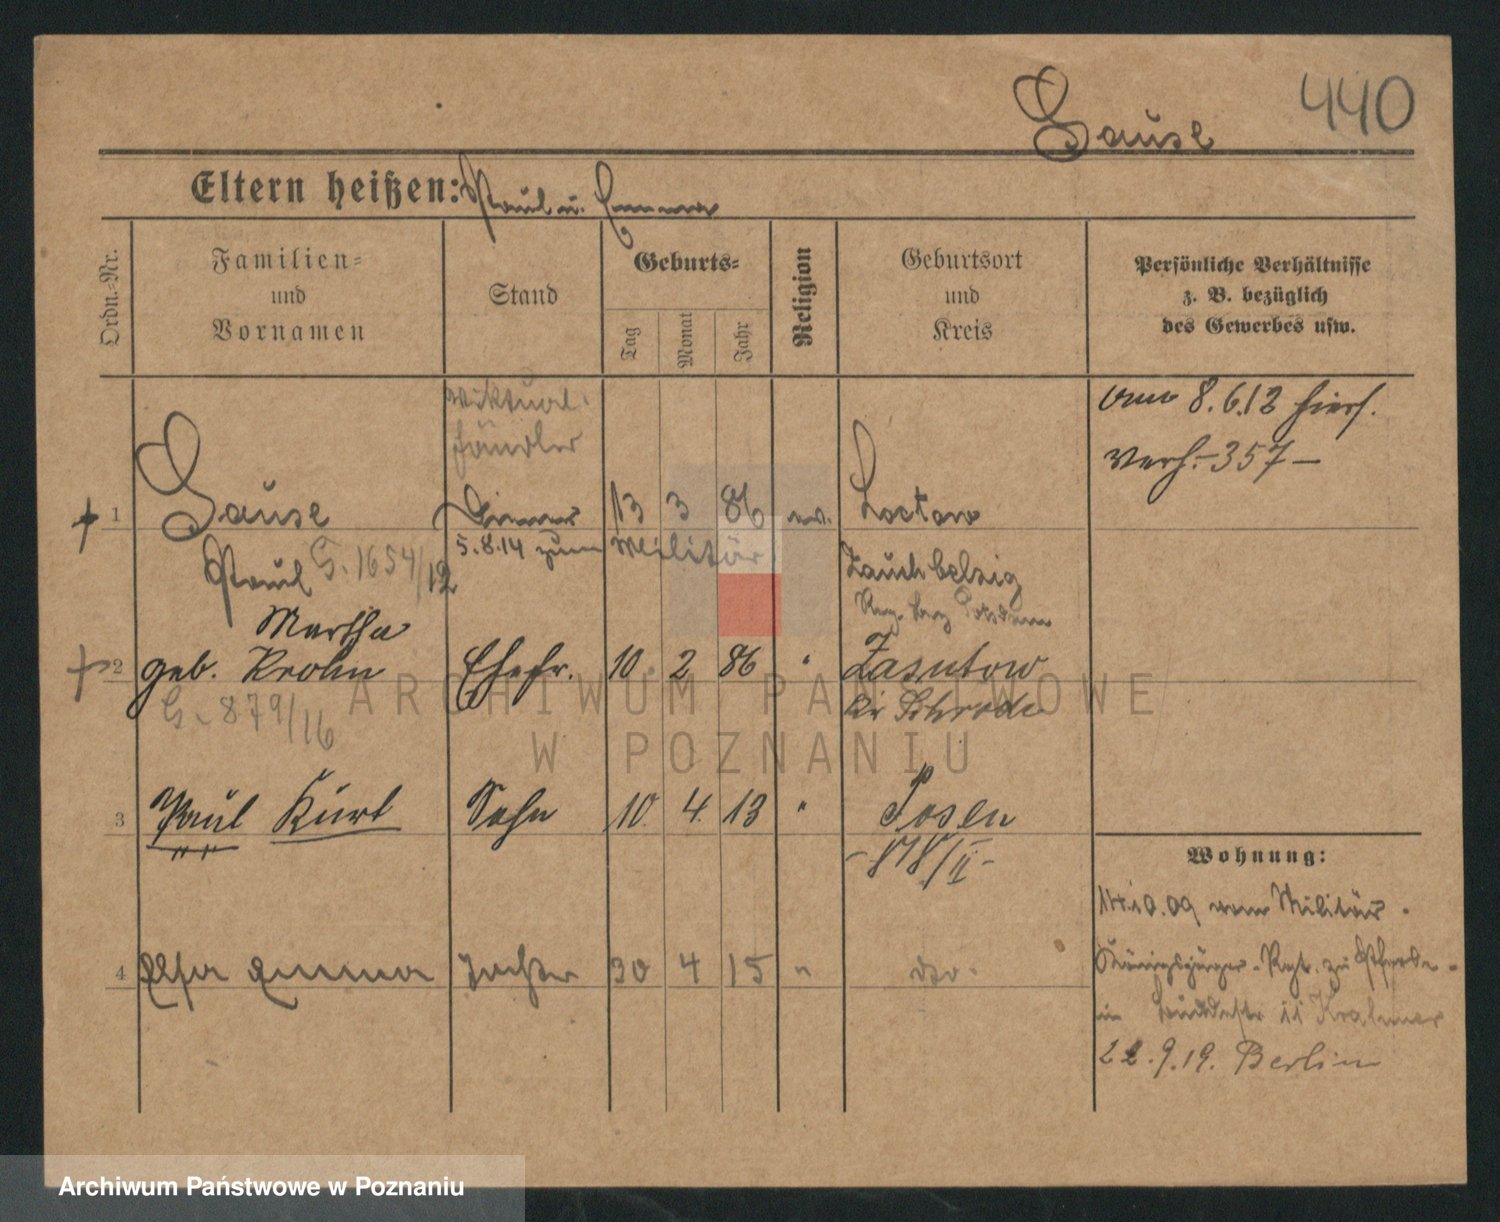 440
Gause
Eltern heißen: Paul u. Emma
Ordn.-Nr.
Familien-
und
Vornamen
Stand
Geburts-
Tag
Monat
Jahr
Religion
Geburtsort
und
Kreis
Persönliche Verhältnisse
z. B. bezüglich
des Gewerbes usw.
Viktual.
händler
am 8.6.12 hier
verh. – 357 –
1 Gause Diener 13 3 86 ev. Loctow
5.8.14 zum Militär
Paul G. 1654/12
Zauch belzig
Reg. Bez Potsdam
Martha
2 geb. Krohn Ehefr. 10. 2 86 " Zasutowo
G. 879/16
Kr Schroda
3 Paul Kurt Sohn 10. 4. 13 " Posen
- 818/II -
Wohnung:
14.10.09 vom Militär.
Königsjäger-Regt. zu Pferde
4 Elsa Emma Tochter 30 4 15 " do.
in 11 Krahmer
22.9.19. Berlin
ARCHIWUM PAŃSTWOWE
W POZNANIU
Archiwum Państwowe w Poznaniu